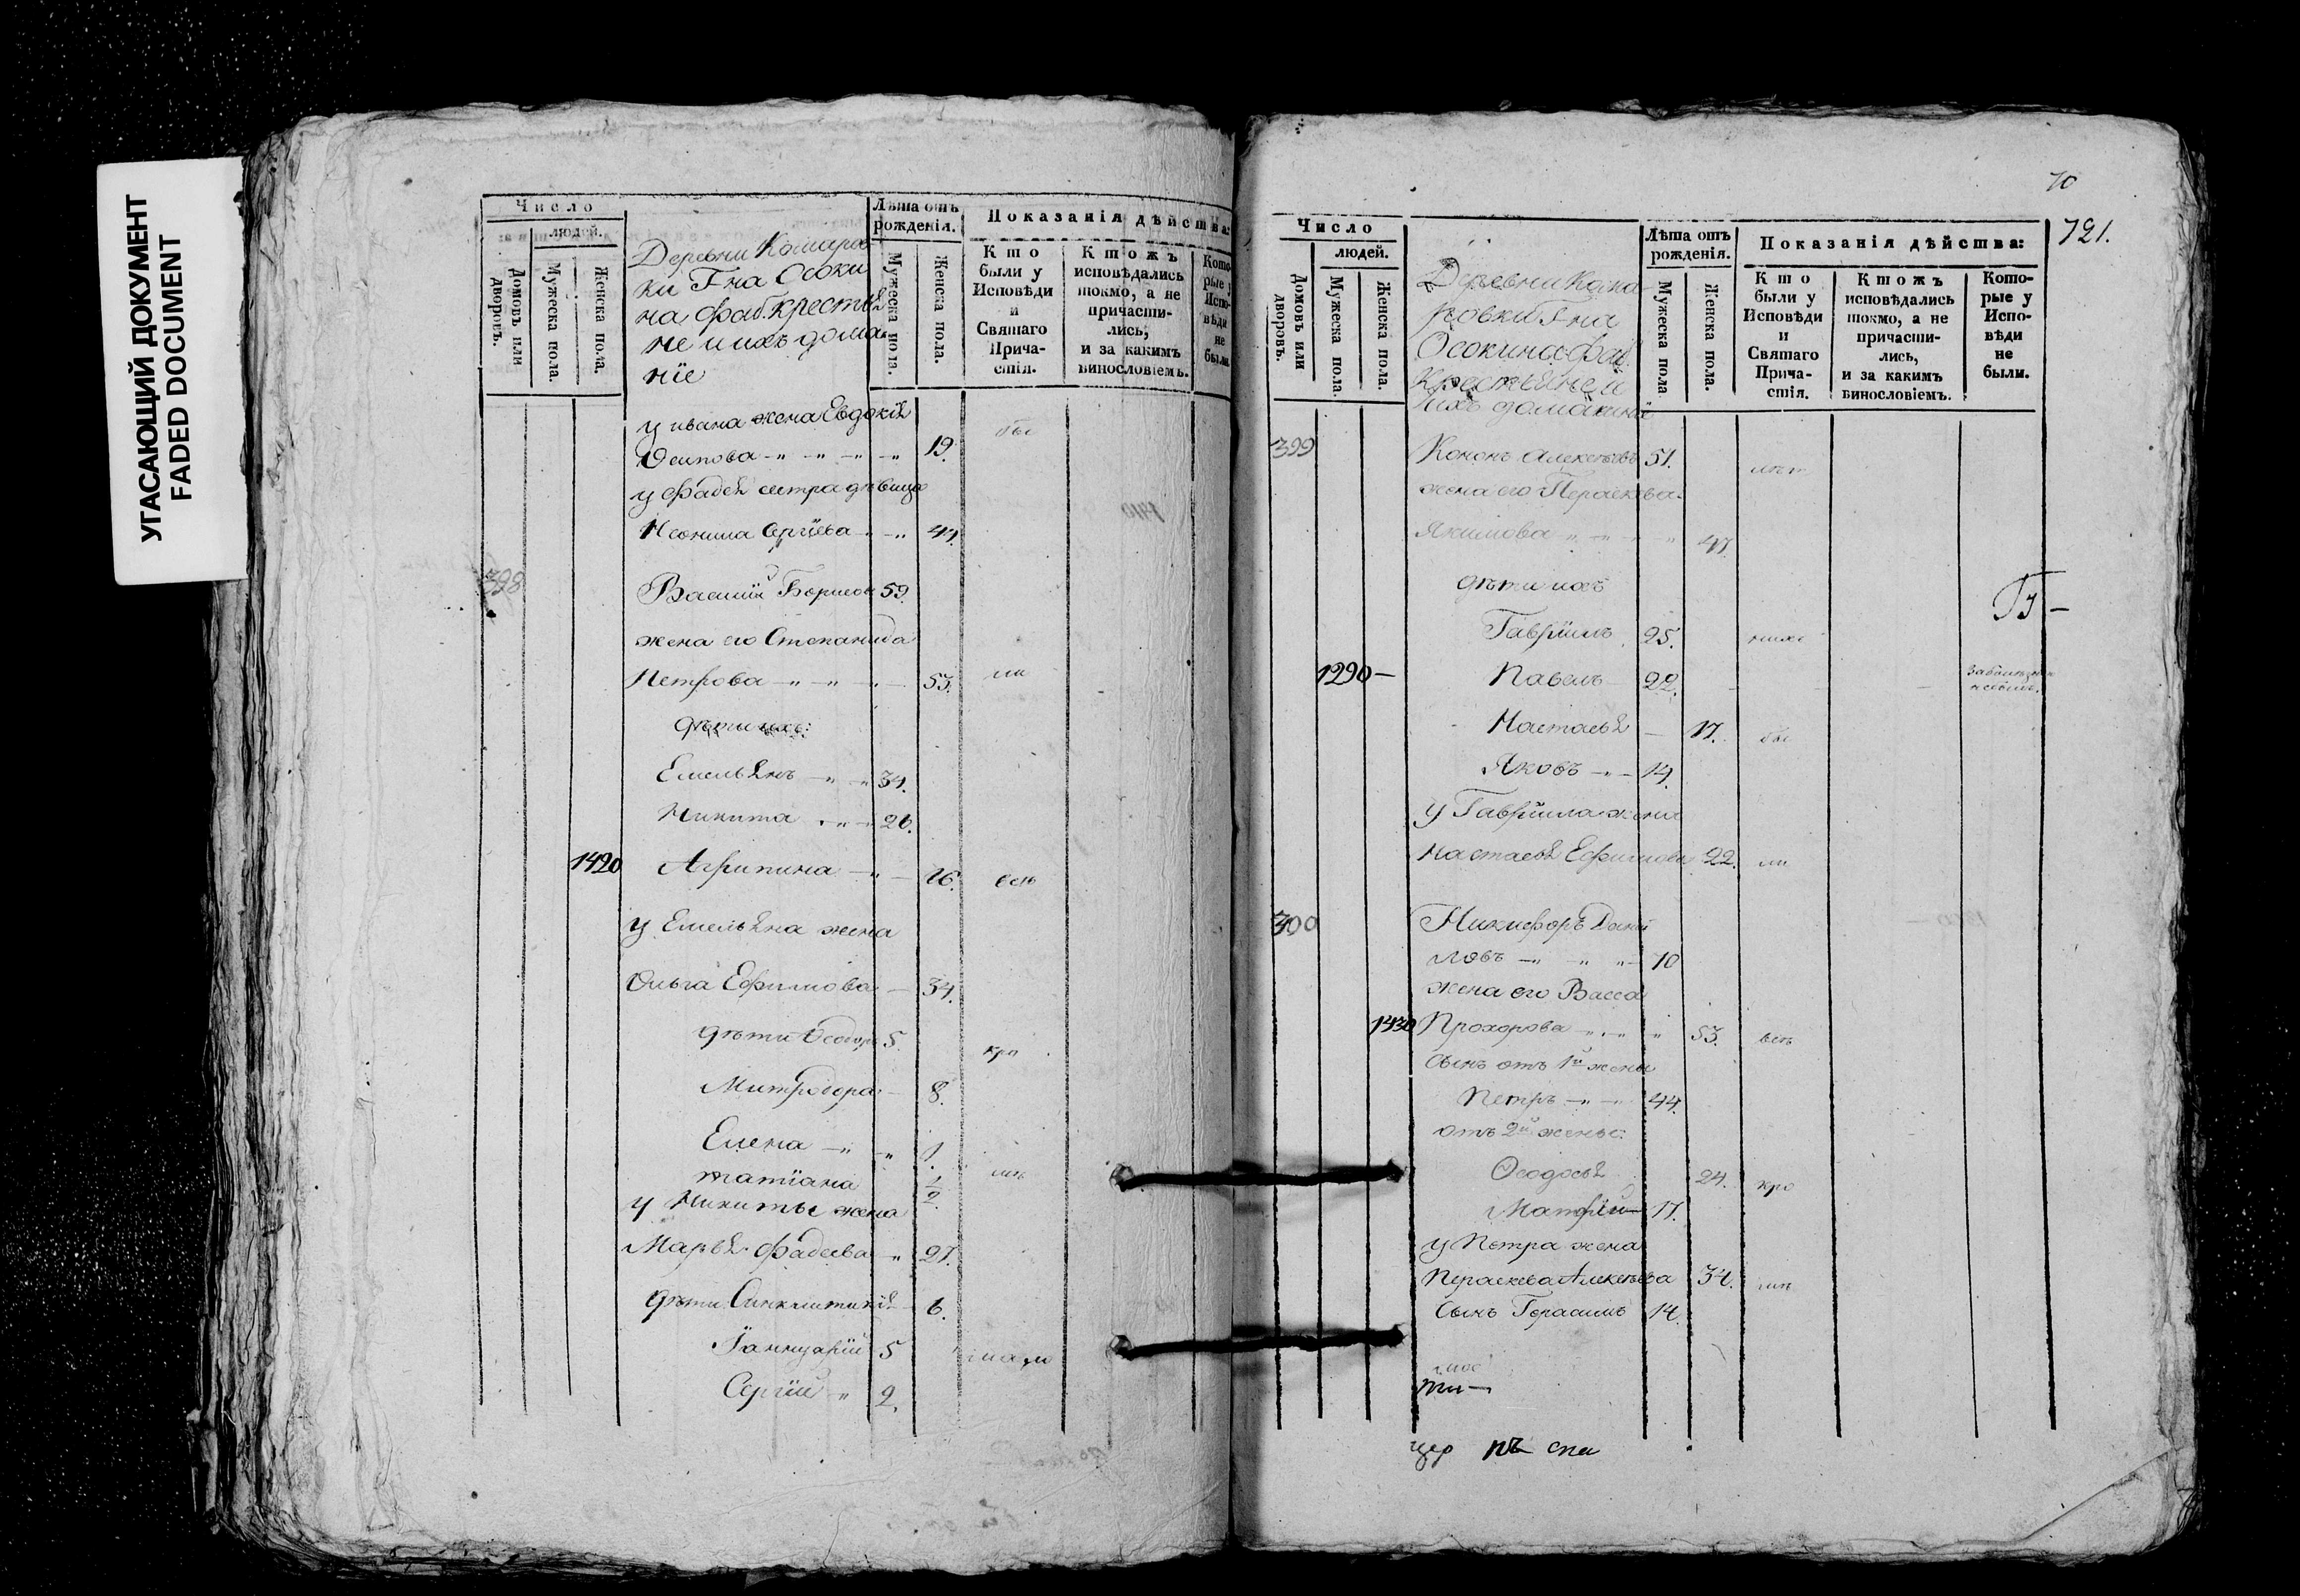 УГАСАЮЩИЙ ДОКУМЕНТ
FADED DOCUMENT
Число
людей.
Домовъ или дворовъ.
Мужеска пола.
Женска пола.
Деревни Комаров
ки Гна Осоки
на фаб. крестья
не и ихъ домаш
ніе
Лѣта отъ рожденія.
Мужеска пола.
Женска пола.
Показанія дѣйства:
Кто были у Исповѣди и Святаго Причастія.
Ктожъ исповѣдались токмо, а не причастились, и за какимъ винословіемъ.
Которые у Исповѣди не были.
у ивана жена Евдокія
Осипова 19. бы
у Фадея сестра дѣвица
Неонила Сергіева
398 Василий Борисовъ 59.
жена его Степанида
Петрова 53. ли
дѣти ихъ:
Емельянъ 34.
Никита 26.
1420 Агрипина 16. всѣ
у Емельяна жена
Ольга Ефимова 34.
дѣти Ѳеодоръ 5. кро
Митродора 8.
Елена 1.
татіана 1/2 мѣ
у Никиты жена
Марья Фадеева 27.
дѣти Синклитикія 6.
Іаннуарій 5
Сергій 2.
70
721.
Число
людей.
Домовъ или дворовъ.
Мужеска пола.
Женска пола.
Деревни Кома
ровки Гна
Осокина фаб.
крестьяне и
ихъ домашніи
Лѣта отъ рожденія.
Мужеска пола
Женска пола.
Показанія дѣйства:
Кто были у Исповѣди и Святаго Причастія.
Ктожъ исповѣдались токмо, а не причастились, и за какимъ винословіемъ.
Которые у Исповѣди не были.
399 Кононъ Алексѣевъ 51.
жена его Пераскева
Якимова 47.
дѣти ихъ
Гавріилъ 25.
1290 — Павелъ 22.
Настасья 17. бы
Яковъ 14.
у Гавріила жена
Настасья Ефимова 22. ли
Никифоръ Даніи
ловъ 70
жена его Васса
1430 Прохорова 53. всѣ
Сынъ отъ 1й жены
Петръ 44.
отъ 2й жены:
Ѳеодосья 24. кро
Матфій 17.
у Петра жена
Пераскева Алексѣева 34. мѣ
Сынъ Герасимъ 14.
ти —
цер пѣ спи